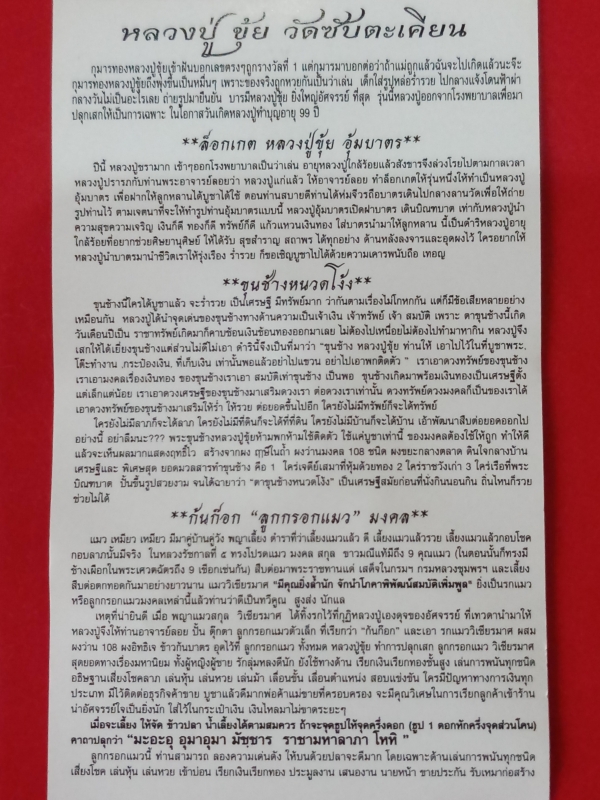 หลวงปู่ ขุ้ย วัดซับตะเคียน
กุมารทองหลวงปู่ขุ้ยเข้าฝันบอกเลขตรงๆถูกรางวัลที่ 1 แต่กุมารมาบอกต่อว่าถ้าแม่ถูกแล้วฉันจะไปเกิดแล้วนะจ๊ะ
กุมารทองหลวงปู่ขุ้ยถึงพุ่งขึ้นเป็นหมื่นๆ เพราะของจริงถูกหวยกันเป็นว่าเล่น เด็กใส่รูปหล่อร่ำรวย ไปกลางแจ้งโดนฟ้าผ่า
กลางวันไม่เป็นอะไรเลย ถ่ายรูปมายืนยัน บารมีหลวงปู่ขุ้ย ยิ่งใหญ่อัศจรรย์ ที่สุด รุ่นนี้หลวงปู่ออกจากโรงพยาบาลเพื่อมา
ปลุกเสกให้เป็นการเฉพาะ ในโอกาสวันเกิดหลวงปู่ทำบุญอายุ 99 ปี
**ล็อกเกต หลวงปู่ขุ้ย อุ้มบาตร**
ปีนี้ หลวงปู่ชรามาก เข้าๆออกโรงพยาบาลเป็นว่าเล่น อายุหลวงปู่ใกล้ร้อยแล้วสังขารจึงล่วงโรยไปตามกาลเวลา
หลวงปู่ปรารภกับท่านพระอาจารย์ลอยว่า หลวงปู่แก่แล้ว ให้อาจารย์ลอย ทำล็อกเกตให้รุ่นหนึ่งให้ทำเป็นหลวงปู่
อุ้มบาตร เพื่อฝากให้ลูกหลานได้บูชาได้ใช้ ตอนท่านสบายดีท่านได้ห่มจีวรถือบาตรเดินไปกลางลานวัดเพื่อให้ถ่าย
รูปท่านไว้ ตามเจตนาที่จะให้ทำรูปท่านอุ้มบาตรแบบนี้ หลวงปู่อุ้มบาตรเปิดฝาบาตร เดินบิณฑบาต เท่ากับหลวงปู่นำ
ความสุขความเจริญ เงินก็ดี ทองก็ดี ทรัพย์ก็ดี แก้วแหวนเงินทอง ใส่บาตรนำมาให้ลูกหลาน นี้เป็นดำริหลวงปู่อายุ
ใกล้ร้อยที่อยากช่วยศิษยานุศิษย์ ให้ได้รับ สุขสำราญ สถาพร ได้ทุกอย่าง ด้านหลังลงจารและอุดผงไว้ ใครอยากให้
หลวงปู่นำบาตรมานำชีวิตเราให้รุ่งเรือง ร่ำรวย ก็ขอเชิญบูชาไปได้ด้วยความเคารพนับถือ เทอญ
**ขุนช้างหนวดโง้ง**
ขุนช้างนี้ใครได้บูชาแล้ว จะร่ำรวย เป็นเศรษฐี มีทรัพย์มาก ว่ากันตามเรื่องไม่โกหกกัน แต่ก็มีข้อเสียหลายอย่าง
เหมือนกัน หลวงปู่ได้นำจุดเด่นของขุนช้างทางด้านความเป็นเจ้าเงิน เจ้าทรัพย์ เจ้า สมบัติ เพราะ ตาขุนช้างนี้เกิด
วันเดือนปีเป็น ราชาทรัพย์เกิดมาก็คาบช้อนเงินช้อนทองออกมาเลย ไม่ต้องไปเหนื่อยไม่ต้องไปทำมาหากิน หลวงปู่จึง
เสกให้ได้เยี่ยงขุนช้างแต่ส่วนไม่ดีไม่เอา ดำรินี้จึงเป็นที่มาว่า "ขุนช้าง หลวงปู่ขุ้ย ท่านให้ เอาไปไว้ในที่บูชาพระ.
โต๊ะทำงาน .กระป๋องเงิน. ที่เก็บเงิน เท่านั้นพอแล้วอย่าไปแขวน อย่าไปเอาพกติดตัว " เราเอาดวงทรัพย์ของขุนช้าง
เราเอามงคลเรื่องเงินทอง ของขุนช้างเราเอา สมบัติเท่าขุนช้าง เป็นพอ ขุนช้างเกิดมาพร้อมเงินทองเป็นเศรษฐีตั้ง
แต่เล็กแต่น้อย เราเอาดวงเศรษฐีของขุนช้างมาเสริมดวงเรา ต่อดวงเราเท่านั้น ดวงทรัพย์ดวงมงคลก็เป็นของเราได้
เอาดวงทรัพย์ของขุนช้างมาเสริมให้ร่ำ ให้รวย ต่อยอดขึ้นไปอีก ใครยังไม่มีทรัพย์ก็จะได้ทรัพย์
ใครยังไม่มีลาภก็จะได้ลาภ ใครยังไม่มีที่ดินก็จะได้ที่ที่ดิน ใครยังไม่มีบ้านก็จะได้บ้าน เอ้าพัฒนาสืบต่อยอดออกไป
อย่างนี้ อย่าลืมนะ??? พระขุนช้างหลวงปู่ขุ้ยห้ามพกห้ามใช้ติดตัว ใช้แค่บูชาเท่านี้ ของมงคลต้องใช้ให้ถูก ทำให้ดี
แล้วจะเห็นผลมากแสดงฤทธิ์ไว สร้างจากผง ฤาษีในถ้ำ ผงว่านมงคล 108 ชนิด ผงขยะกลางตลาด ดินใจกลางบ้าน
เศรษฐีและ พิเศษสุด ยอดมวลสารทำขุนช้าง คือ 1 ไคร่เจดีย์เสมาที่หุ้มด้วยทอง 2 ไคร่ราชวังเก่า 3 ไคร่เรือที่พระ
บิณฑบาต ปั้นขึ้นรูปสวยงาม จนได้ฉายาว่า "ตาขุนช้างหนวดโง้ง" เป็นเศรษฐีสมัยก่อนที่นั่งกินนอนกิน ถิ่นไหนก็รวย
ช่วยได้มาก
**ก้นก็อก "ลูกกรอกแมว" มงคล**
แมว เหมียว เหมียว มีมาคู่บ้านคู่วัง พญาเลี้ยง ตำราที่ว่าเลี้ยงแมวแล้ว ดี เลี้ยงแมวแล้วรวย เลี้ยงแมวแล้วกอบโชค
กอบลาภนั้นมีจริง ในหลวงรัชกาลที่ ๕ ทรงโปรดแมว มงคล สกุล ขาวมณีแท้มีถึง 9 คุณแมว (ในตอนนั้นก็ทรงมี
ช้างเผือกในพระเศวตฉัตรถึง 9 เชือกเช่นกัน) สืบต่อมาพระราชทานแด่ เสด็จในกรมฯ กรมหลวงชุมพรฯ และเลี้ยง
สืบต่อตกทอดกันมาอย่างยาวนาน แมววิเชียรมาศ "มีคุณยิ่งล้ำนัก จักนำโภคาพิพัฒน์สมบัติเพิ่มพูล" ยิ่งเป็นรกแมว
หรือลูกกรอกแมวมงคลเหล่านี้แล้วท่านว่าดีเป็นทวีคูณ สูงส่ง นักแล
เหตุที่น่ายินดี เมื่อ พญาแมวสกุล วิเชียรมาศ ได้ทิ้งรกไว้ที่กุฏิหลวงปู่เองดุจของอัศจรรย์ ที่เทวดานำมาให้
หลวงปู่จึงให้ท่านอาจารย์ลอย ปั้น ตุ๊กตา ลูกกรอกแมวตัวเล็ก ที่เรียกว่า "ก้นก็อก" และเอา รกแมววิเชียรมาศ ผสม
ผงว่าน 108 ผงอิทธิเจ ข้าวก้นบาตร อุดไว้ที่ ลูกกรอกแมว ทั้งหมด หลวงปู่ขุ้ย ทำการปลุกเสก ลูกกรอกแมว วิเชียรมาศ
สุดยอดทางเรื่องมหานิยม ทั้งผู้หญิงผู้ชาย รักลุ่มหลงดีนัก ยังใช้ทางด้าน เรียกเงินเรียกทองชั้นสูง เล่นการพนันทุกชนิด
อธิษฐานเสี่ยงโชคลาภ เล่นหุ้น เล่นหวย เล่นม้า เลื่อนชั้น เลื่อนตำแหน่ง สอบแข่งขัน ใครมีปัญหาทางการเงินทุก
ประเภท มีไว้ติดต่อธุรกิจค้าขาย บูชาแล้วดีมากพ่อค้าแม่ขายที่ครอบครอง จะมีคุณวิเศษในการเรียกลูกค้าเข้าร้าน
น่าอัศจรรย์ใจเป็นยิ่งนัก ใส่ไว้ในกระเป๋าเงิน เงินไหลมาไม่ขาดระยะๆ
เมื่อจะเลี้ยง ให้จัด ข้าวปลา น้ำเลี้ยงได้ตามสมควร ถ้าจะจุดธูปให้จุดครึ่งดอก (ธูป 1 ดอกหักครึ่งจุดส่วนโคน)
คาถาปลุกว่า "มะอะอุ อุมาอุมา มัชชาร ราชามหาลาภา โหหิ "
ลูกกรอกแมวนี้ ท่านสามารถ ลองความเด่นดัง ให้บนด้วยปลาจะดีมาก โดยเฉพาะด้านเล่นการพนันทุกชนิด
เสี่ยงโชค เล่นหุ้น เล่นหวย เข้าบ่อน เรียกเงินเรียกทอง ประมูลงาน เสนองาน นายหน้า ขายประกัน รับเหมาก่อสร้าง